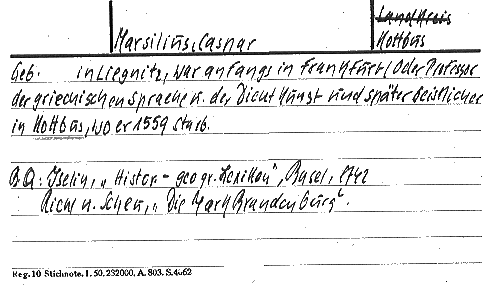 Landkreis
Marsilius, Caspar Kottbus
Geb. in Liegnitz, war anfangs in Frankfurt/Oder Professor
der griechischen Sprache u. der Dichtkunst und später Geistlicher
in Kottbus, wo er 1559 starb.
B Q: Iselin, „Histor-geogr. Lexikon", Basel, 1742
u. „Die Mark Brandenburg".
Reg. 10 Stichnote. I. 50. 232000. A. 803. S. 4662